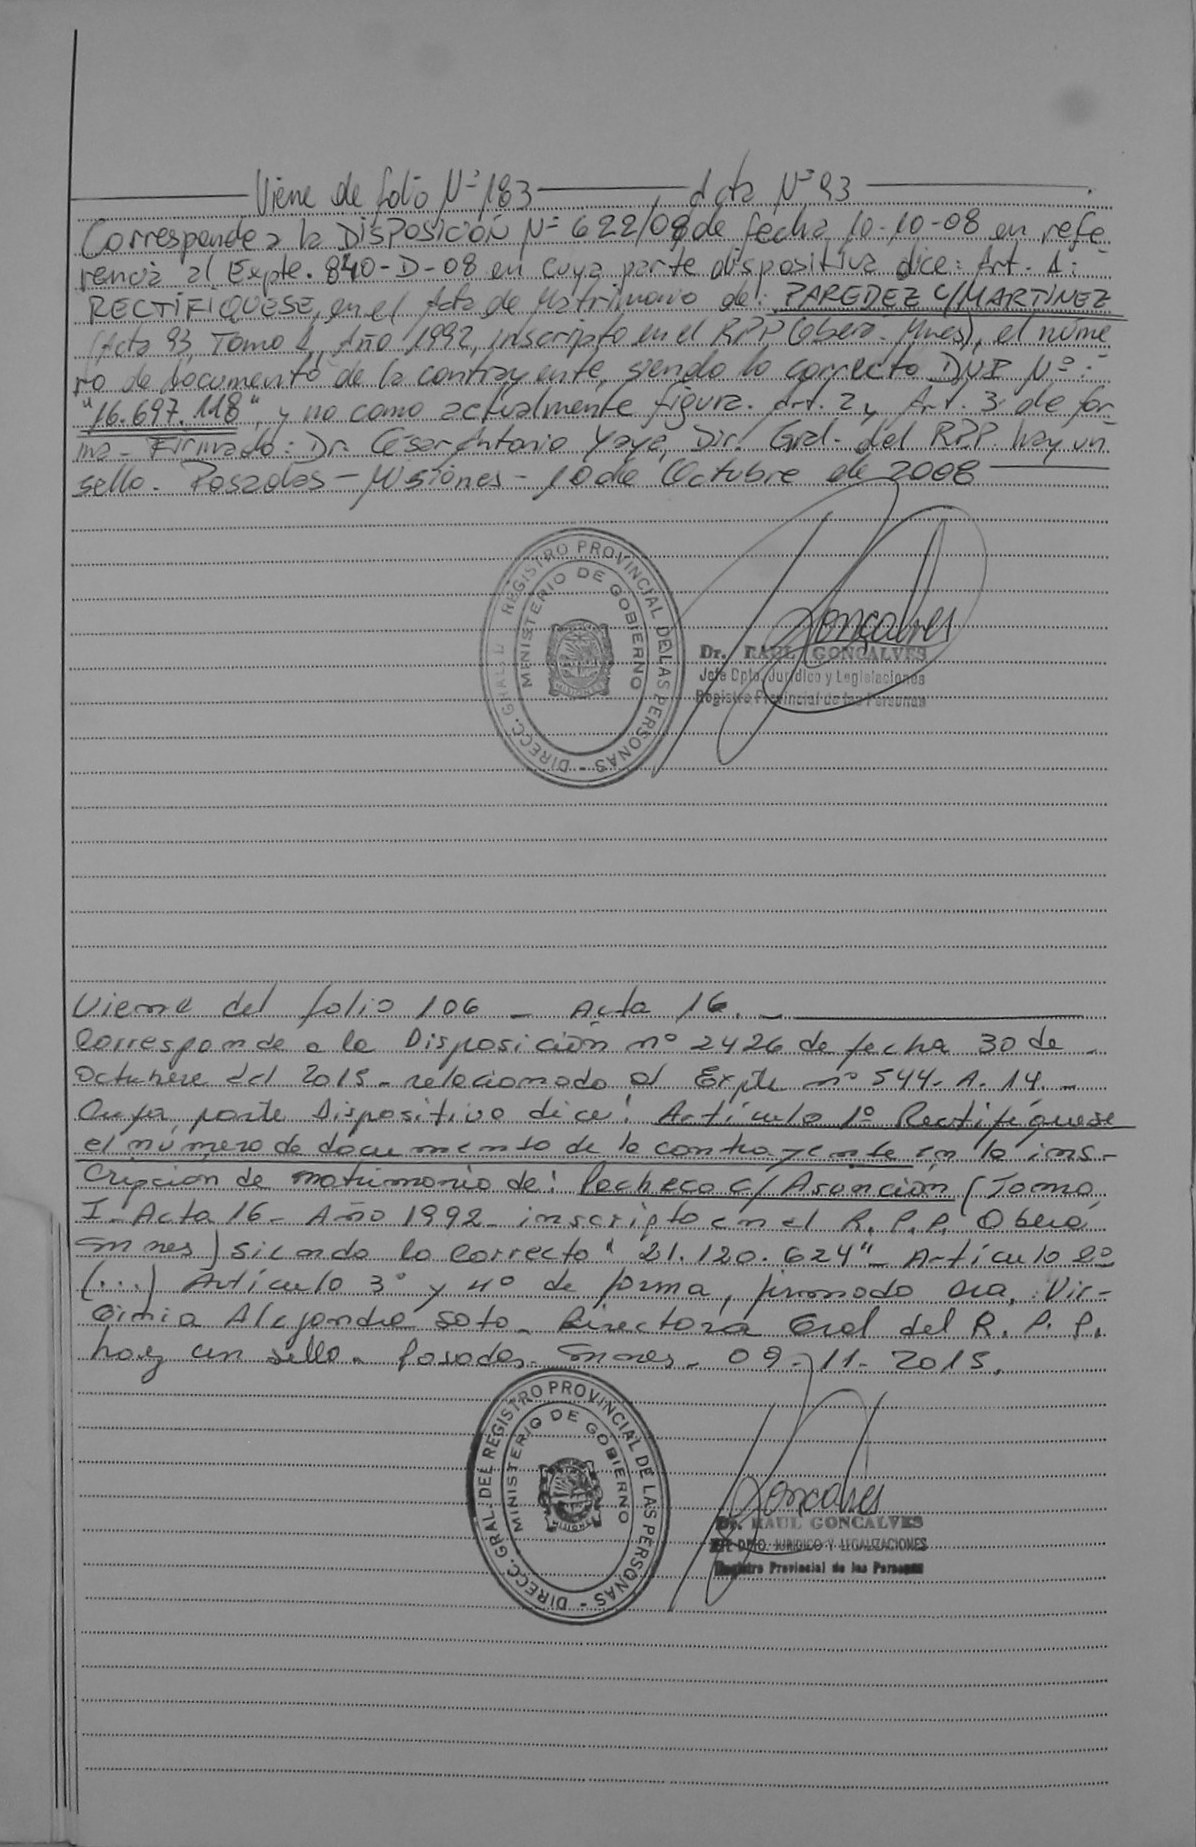 Viene de folio Nº 183 — Acta Nº 93
Corresponde a la DISPOSICIÓN Nº 622/08, de fecha 10-10-08 en refe
rencia al Expte. 840-D-08 en cuya parte dispositiva dice: Art. 1:
RECTIFÍQUESE, en el Acta de Matrimonio de: PAREDEZ C/MARTINEZ
(Acta 93, Tomo , Año 1992, inscripto en el RPP, Oberá - Mnes), el núme
ro de documento de la contrayente, siendo lo correcto DNI Nº:
"16.697.118", y no como actualmente figura. Art. 2 y Art. 3 de for
ma - Firmado: Dr. Cesar Antonio Yaya, Dir. Gral. del RPP. hay un
sello. Posadas - Misiones - 10 de Octubre de 2008
DIRECC. GRAL. D REGISTRO PROVINCIAL DE LAS PERSONAS -
MINISTERIO DE GOBIERNO
Goncalves
Dr. RAUL GONCALVES
Jefe Dpto. Jurídico y Legislaciones
Registro Provincial de las Personas
Viene del folio 106 - Acta 16. -
Corresponde a la Disposición nº 2426 de fecha 30 de -
Octubre del 2015 - relacionado al Expte nº 544-A-14. -
Cuya parte Dispositiva dice: Artículo 1º Rectifíquese
el número de documento de la contrayente en la ins-
cripción de matrimonio de: Pacheco c/ Asunción (Tomo
I - Acta 16 - Año 1992 - inscripto en el R. P. P. Oberá
Mnes) siendo lo correcto "21.120.624" - Artículo 2º
(...) Artículo 3º y 4º de forma, firmado Dra. Vir-
ginia Alejandra Soto - Directora Gral del R. P. P.
hay un sello - Posadas - Mnes - 09-11-2015.
DIRECC. GRAL. DEL REGISTRO PROVINCIAL DE LAS PERSONAS -
MINISTERIO DE GOBIERNO
Goncalves
Dr. RAUL GONCALVES
DPTO. JURIDICO Y LEGALIZACIONES
Registro Provincial de las Personas